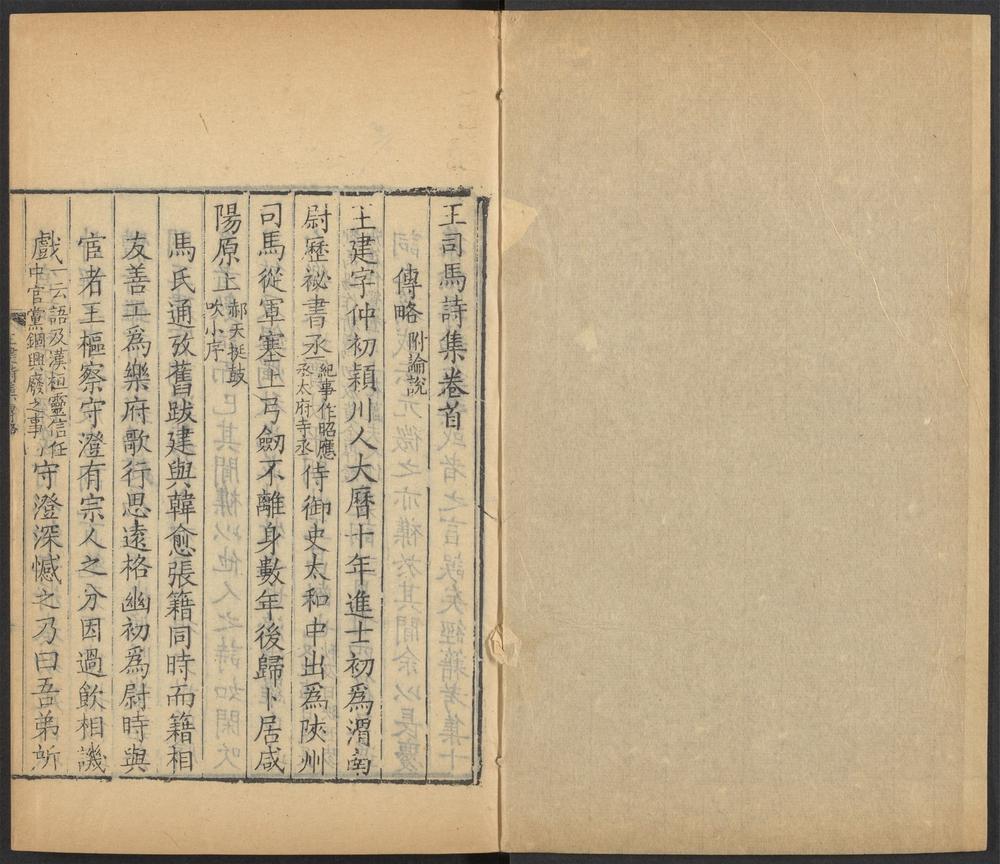 王司馬詩集卷首
傳略附論說
王建字仲初穎川人大曆十年進士初爲渭南
尉歷祕書丞紀事作昭應丞太府寺丞侍御史太和中出爲陝州
司馬從軍塞上弓劒不離身數年後歸卜居咸
陽原上郝天挺鼓吹小序
馬氏通攷舊跋建與韓愈張籍同時而籍相
友善工爲樂府歌行思遠格幽初爲尉時與
宦者王樞察守澄有宗人之分因過飲相譏
戲一云語及漢桓靈信任中官黨錮興廢之事守澄深憾之乃曰吾弟所